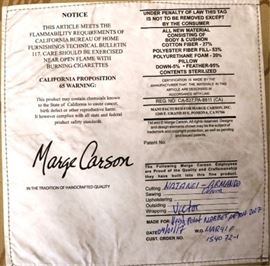 NOTICE
THIS ARTICLE MEETS THE
FLAMMABILITY REQUIREMENTS OF
CALIFORNIA BUREAU OF HOME
FURNISHINGS TECHNICAL BULLETIN
117. CARE SHOULD BE EXERCISED
NEAR OPEN FLAME WITH
BURNING CIGARETTES
CALIFORNIA PROPOSITION
65 WARNING:
This product may contain chemicals known
to the State of California to cause cancer,
birth defects or other reproductive harm.
It however complies with all state and federal
product safety standards.
Marge Carson
IN THE TRADITION OF HANDCRAFTED QUALITY
UNDER PENALTY OF LAW THIS TAG
IS NOT TO BE REMOVED EXCEPT
BY THE CONSUMER
ALL NEW MATERIAL
CONSISTING OF
BODY & CUSHION
COTTON FIBER - 27%
POLYESTER FIBER FILL- 53%
POLYURETHANE FOAM - 20%
PILLOW
DOWN-5% FEATHER-95%
CONTENTS STERILIZED
CERTIFICATION IS MADE BY THE
MANUFACTURER THAT THE MATERIALS
IN THIS ARTICLE ARE DESCRIBED IN
ACCORDANCE WITH LAW.
MANUFACTURED BY MARGE CARSON, INC.
Patent No.
The Following Marge Carson Employees
are Proud of the Quality and Craftsmanship
they have built into this fine product.
Cutting
Sewing ARMANDO
Upholstering
Outside
Wrapping Victor
MADE FOR
DATE
NO. MAR41F
CUST. ORDER NO.